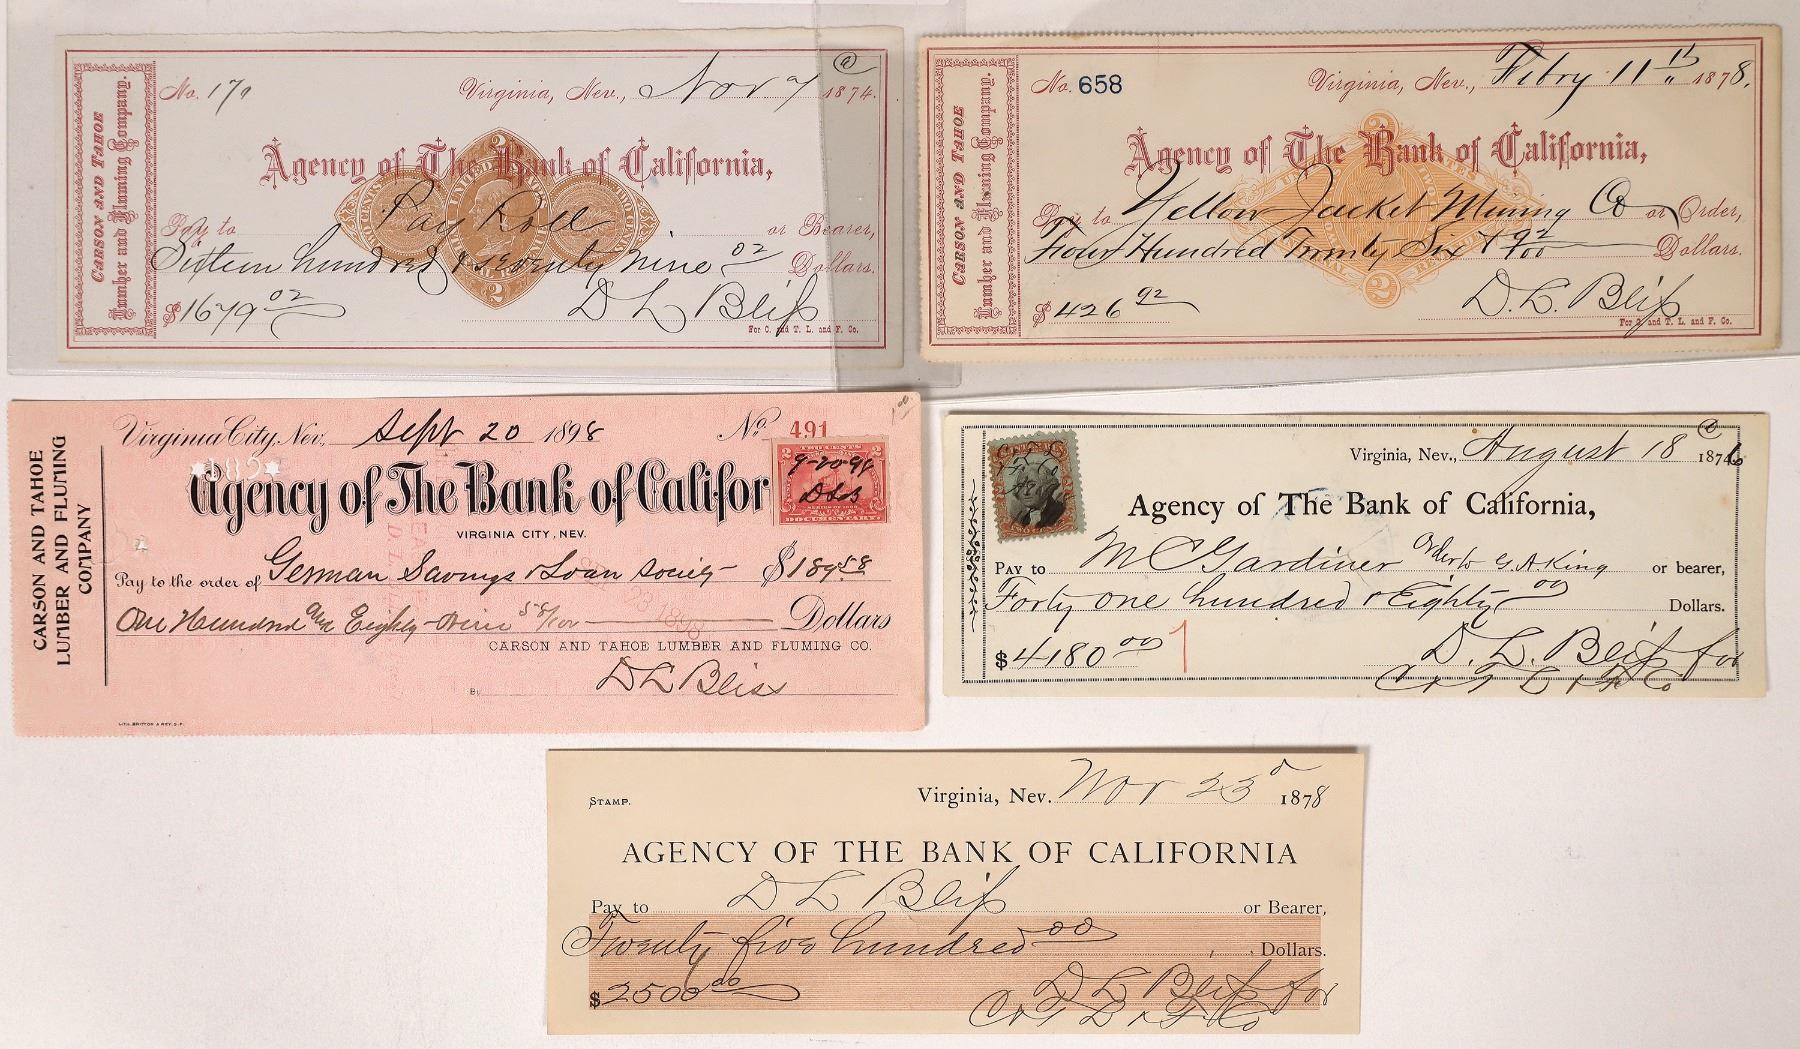 CARSON AND TAHOE
Lumber and Fluming Company.
No. 170
Virginia, Nev., Nov 7 1874.
Agency of The Bank of California,
Pay to Pay Roll or Bearer,
Sixteen hundred & seventy nine 02 Dollars.
$1679 02
D L Bliss
For C. and T. L. and F. Co.
CARSON AND TAHOE
Lumber and Fluming Company.
No. 658
Virginia, Nev., Febry 11th 1878.
Agency of The Bank of California,
Pay to Yellow Jacket Mining Co or Order,
Four Hundred Twenty Six & 92/100 Dollars.
$426 92
D. L. Bliss
For C. and T. L. and F. Co.
CARSON AND TAHOE
LUMBER AND FLUMING
COMPANY
Virginia City, Nev., Sept 20 1898 No. 491
Agency of The Bank of Califor
VIRGINIA CITY, NEV.
2 2
9-20-98
DLB
DOCUMENTARY
Pay to the order of German Savings & Loan Society $189 58
One Hundred and Eighty-Nine 58/100 Dollars
23 1898
CARSON AND TAHOE LUMBER AND FLUMING CO.
By D L Bliss
LITH. BRITTON & REY, S.F.
Virginia, Nev., August 18 1876
Agency of The Bank of California,
PAY TO M C Gardiner Order G A King or bearer,
Forty one hundred & Eighty 00 Dollars.
$4180 00
D. L. Bliss for
C & T L & F Co
STAMP.
Virginia, Nev. Nov 23d 1878
AGENCY OF THE BANK OF CALIFORNIA
Pay to D L Bliss or Bearer,
Twenty five hundred 00 Dollars.
$2500 00
D L Bliss for
C & T L & F Co